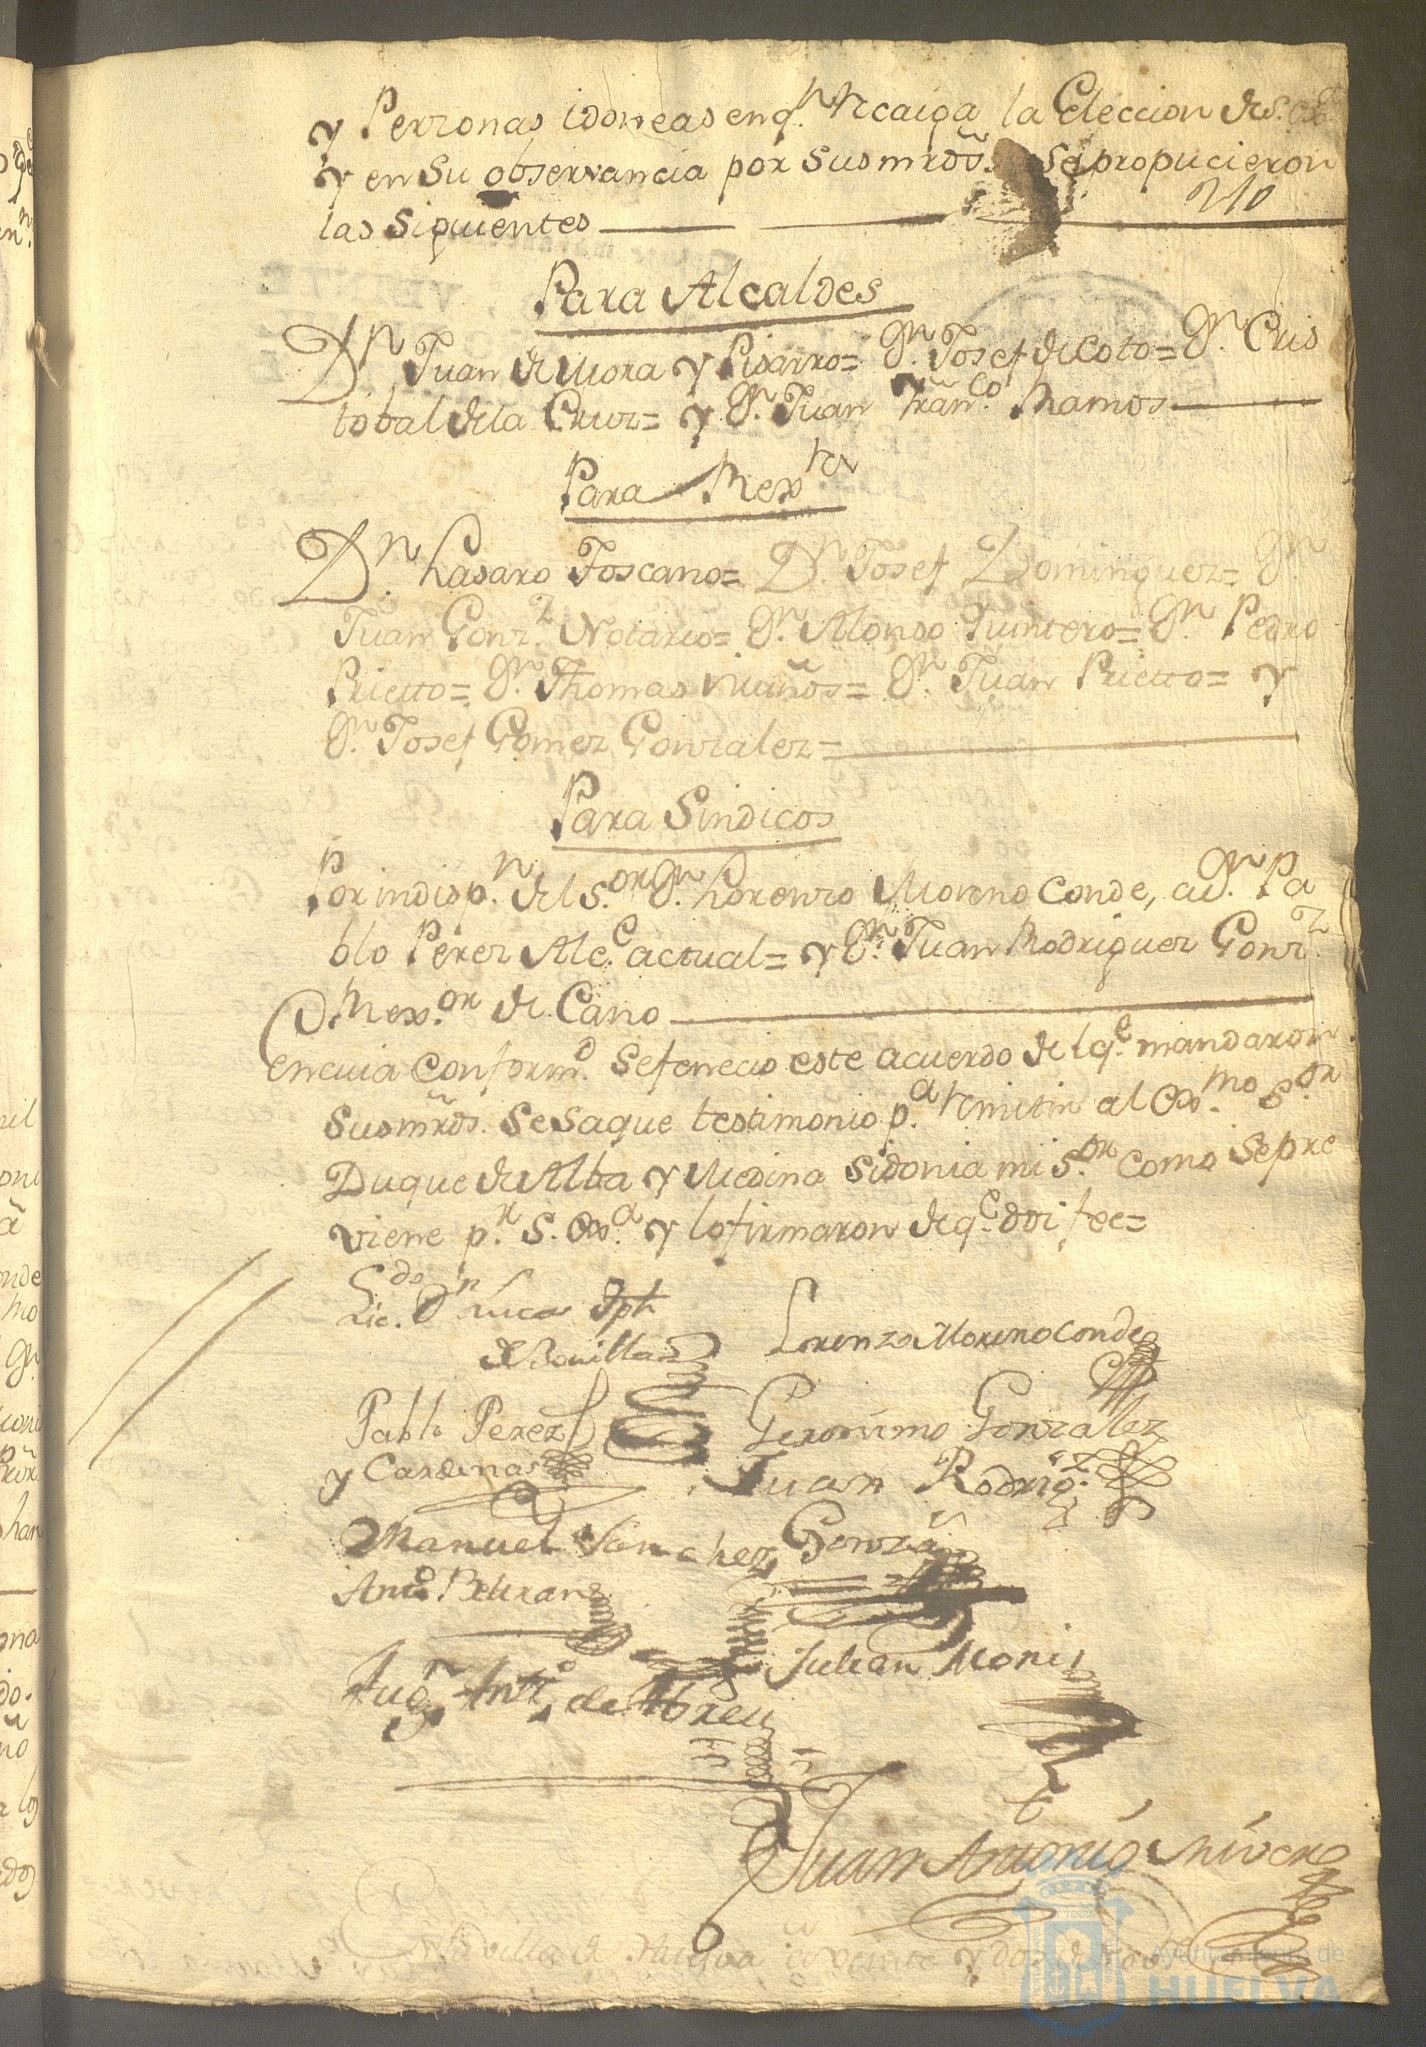 y Perzonas idoneas en q.n recaiga la Eleccion de S. Ex.a
y en su observancia por sus mrds. se propucieron
210
las siguientes
Para Alcaldes
Dn. Juan de Mora y Pisarro= Dn. Josef de Coto= Dn. Cris
tobal de la Cruz= y Dn. Juan Franco. Ramos
Para Rexres
Dn. Lasaro Toscano= Dn. Josef Dominguez= Dn.
Juan Gonz.z Notario= Dn. Alonso Quintero= Dn. Pedro
Prietto= Dn. Thomas Muños= Dn. Juan Prietto= y
Dn. Josef Gomez Gonzalez=
Para Sindicos
Por indisp.n del S.or Dn. Lorenzo Moreno Conde, a Dn. Pa
blo Perez Alc.e actual= y Dn. Juan Rodriguez Gonz.z
Rex.or de Cano
En cuia conform.d se fenecio este acuerdo de lq.e mandaron
sus mrds. se saque testimonio p.a remitir al Ex.mo S.or
Duque de Alba y Medina Sidonia mi S.or como se pre
viene p.r S. Ex.a y lo firmaron de q.e doi fee=
Lic.do Dn Lucas Jph
de Bonillas
Lorenzo Moreno Conde
Pablo Perez
y Cardenas
Geronimo Gonzalez
Juan Rodrig.z
Gonzã
Manuel Sanchez
Anto. Beltran
Julian Monis
Aug.n Antº. de Abreu
Juan Antonio Rivero
En la villa de Huelva en veinte y dos de
Ayuntamiento de
HUELVA